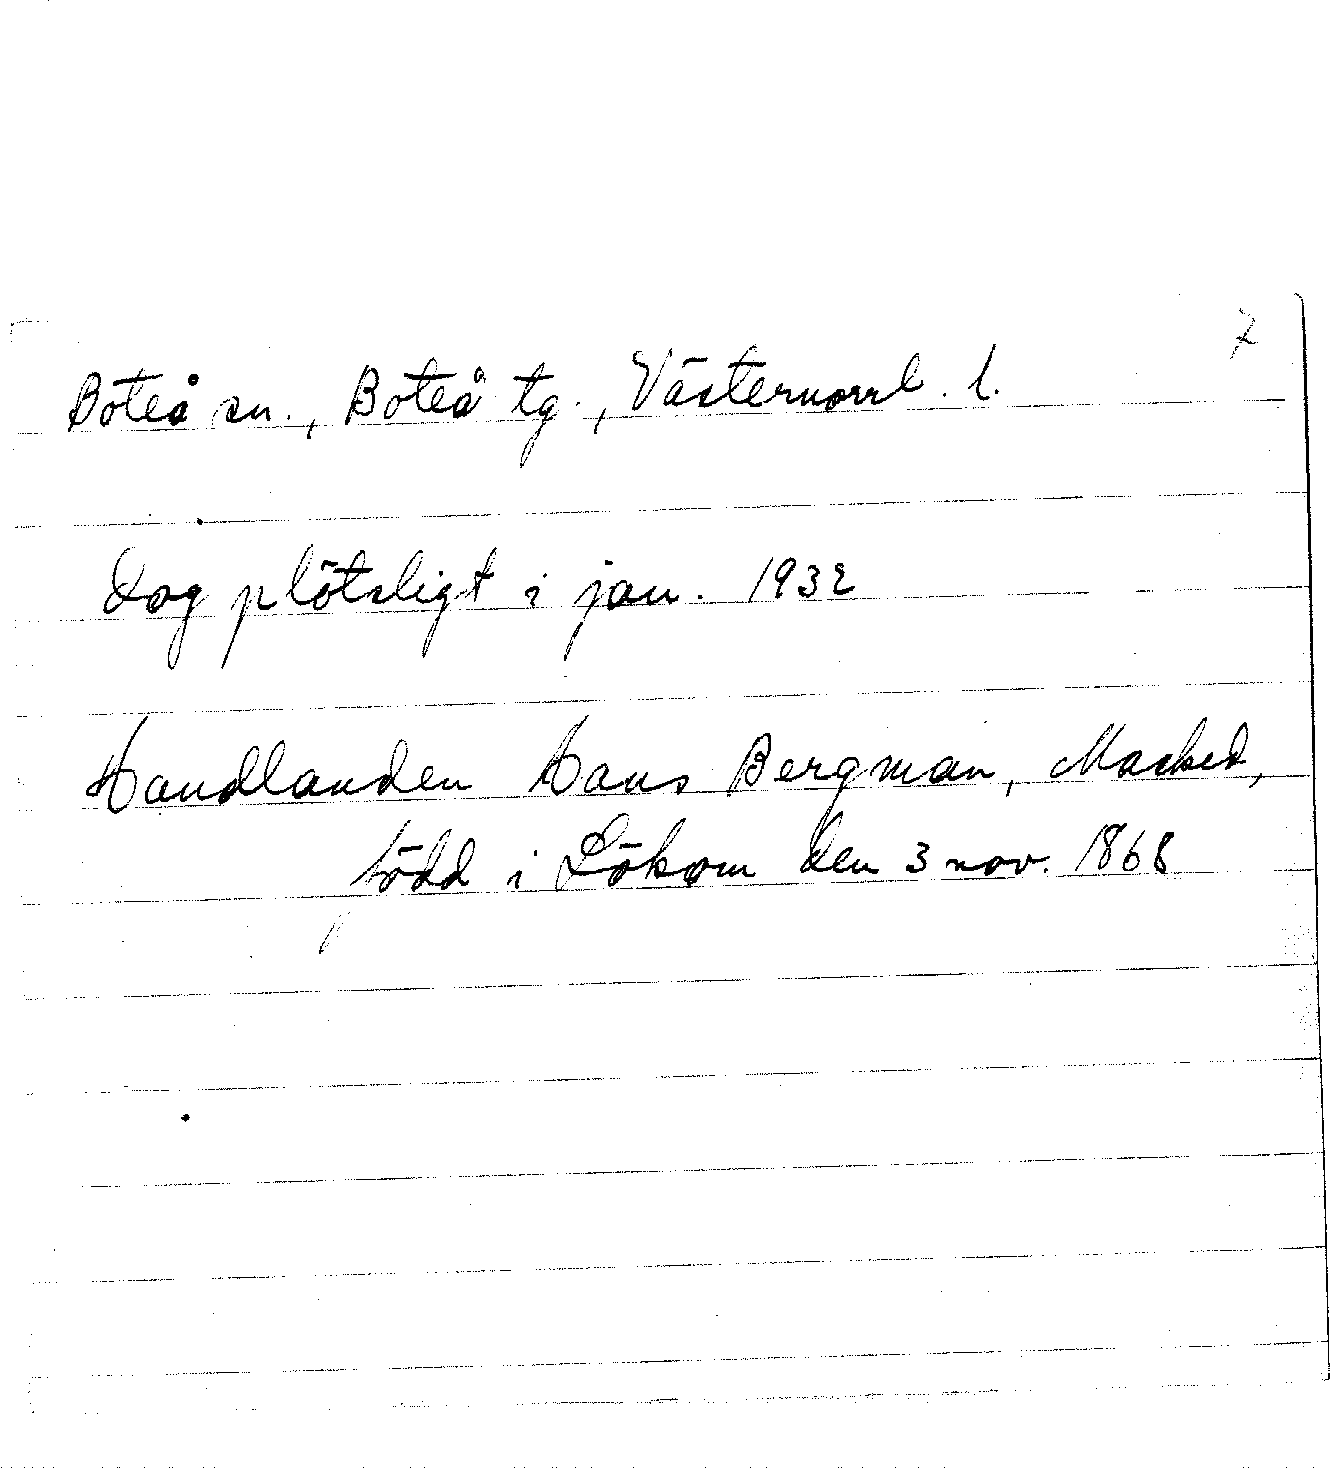 7
Boteå sn., Boteå tg., Västernorrl. l.
Dog plötsligt i jan. 1932
Handlanden Hans Bergman, Marked,
född i Lökom den 3 nov. 1868